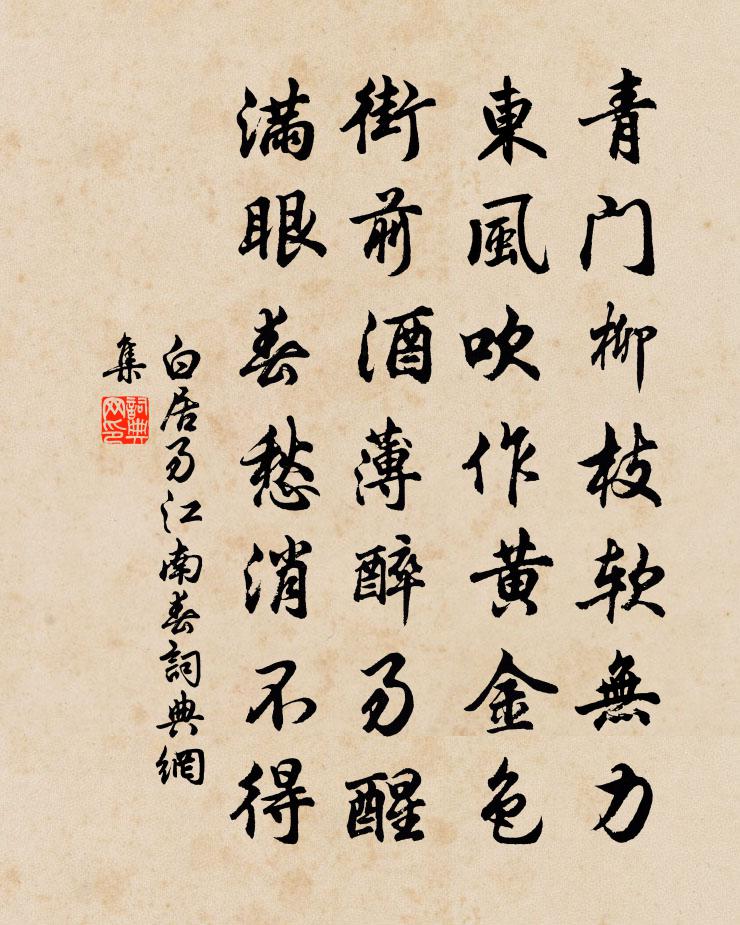 青门柳枝软無力
東風吹作黄金色
街前酒薄醉易醒
满眼春愁消不得
白居易江南春詞典網
集
詞典
网印